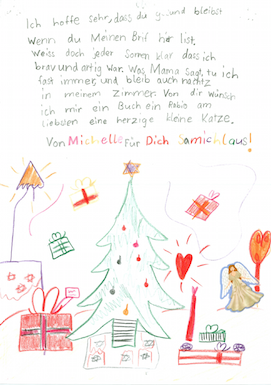 Ich hoffe sehr, dass du gsund bleibst
Wenn du Meinen Brif hir list,
weiss doch jeder Sonnen klar dass ich
brav und artig war. Was Mama sagt, tu ich
fast immer, und bleib auch nachtz
in meinem zimmer. Von dir wünsch
ich mir ein Buch ein Rabio am
liebsten eine herzige kleine Katze.
Von Michelle Für Dich Samichlaus!